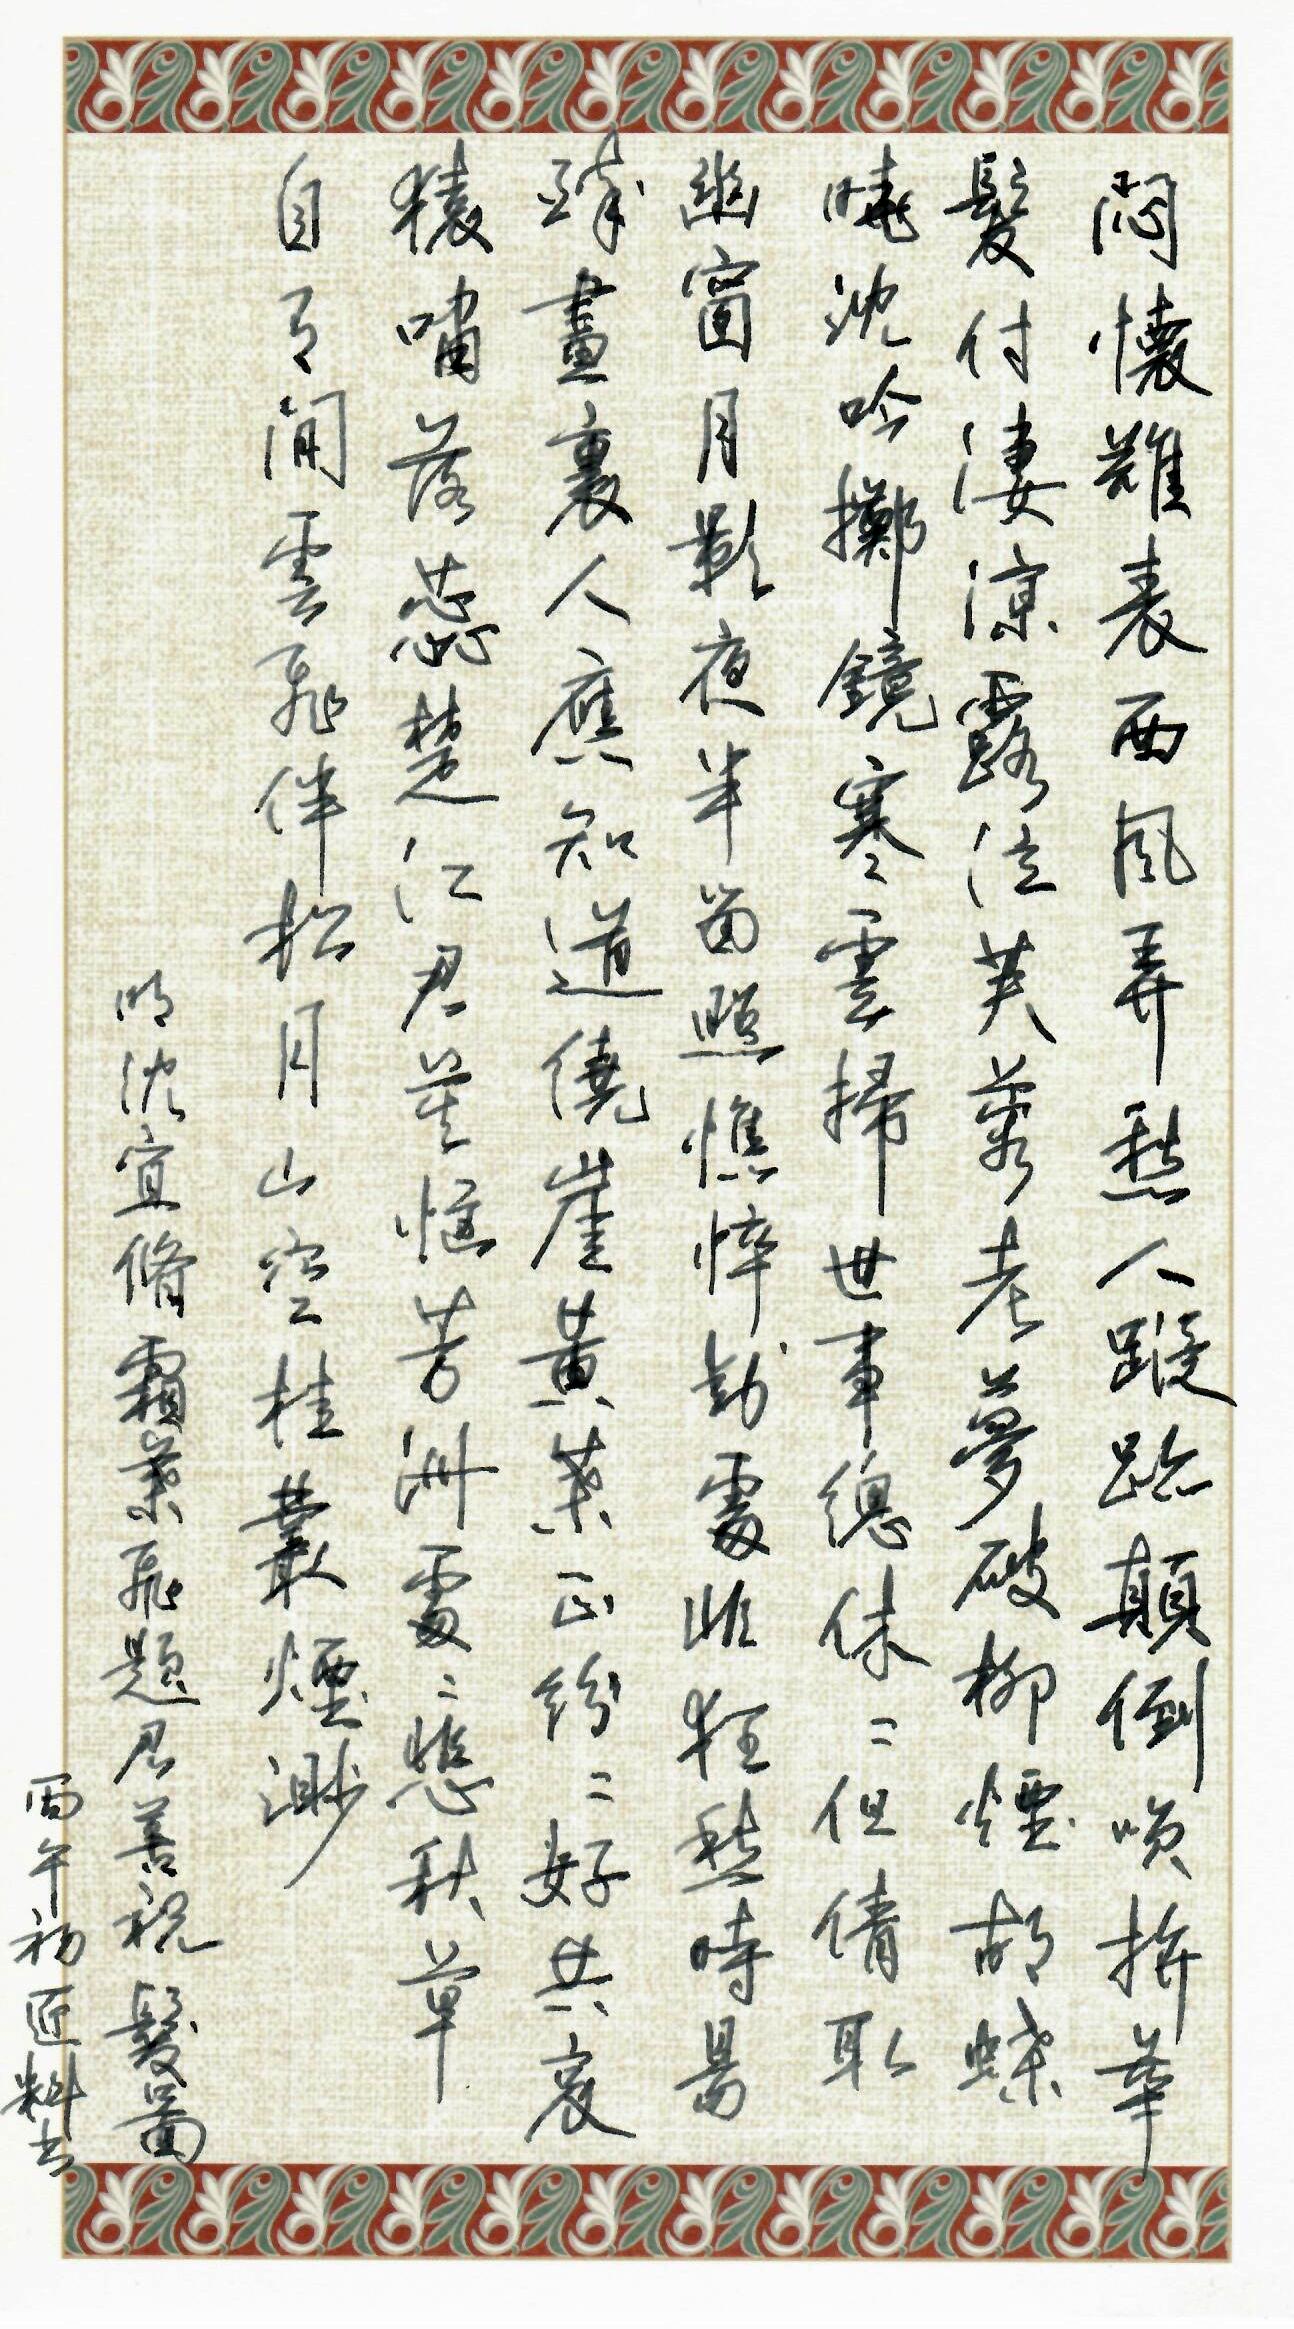 悶懷難表西風弄愁人蹤跡顛倒拚華
髮付淒涼露泣芙蓉老夢破柳煙胡蝶
曉沈吟擲鏡寒雲掃世事總休〻但倩取
幽窗月影夜半留照憔悴處非狂愁時易
醉畫裏人應知道繞崖黃葉正紛〻好共哀
猿嘯落蕊楚江君莫怪芳洲處〻悲秋草
自有閒雲飛伴松月山空桂叢煙渺
明沈宜脩霜葉飛題君善祝髮圖
丙午初匠料書